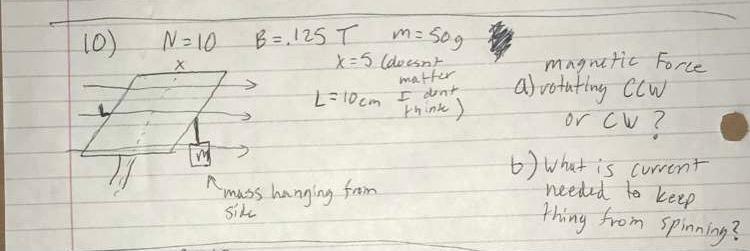 10) N=10 B=.125 T m=50g
x=5 (doesnt
matter
L=10cm I dont
think)
x
L
m
mass hanging from
side
magnetic Force
a) rotating CCW
or CW?
b) What is current
needed to keep
thing from spinning?